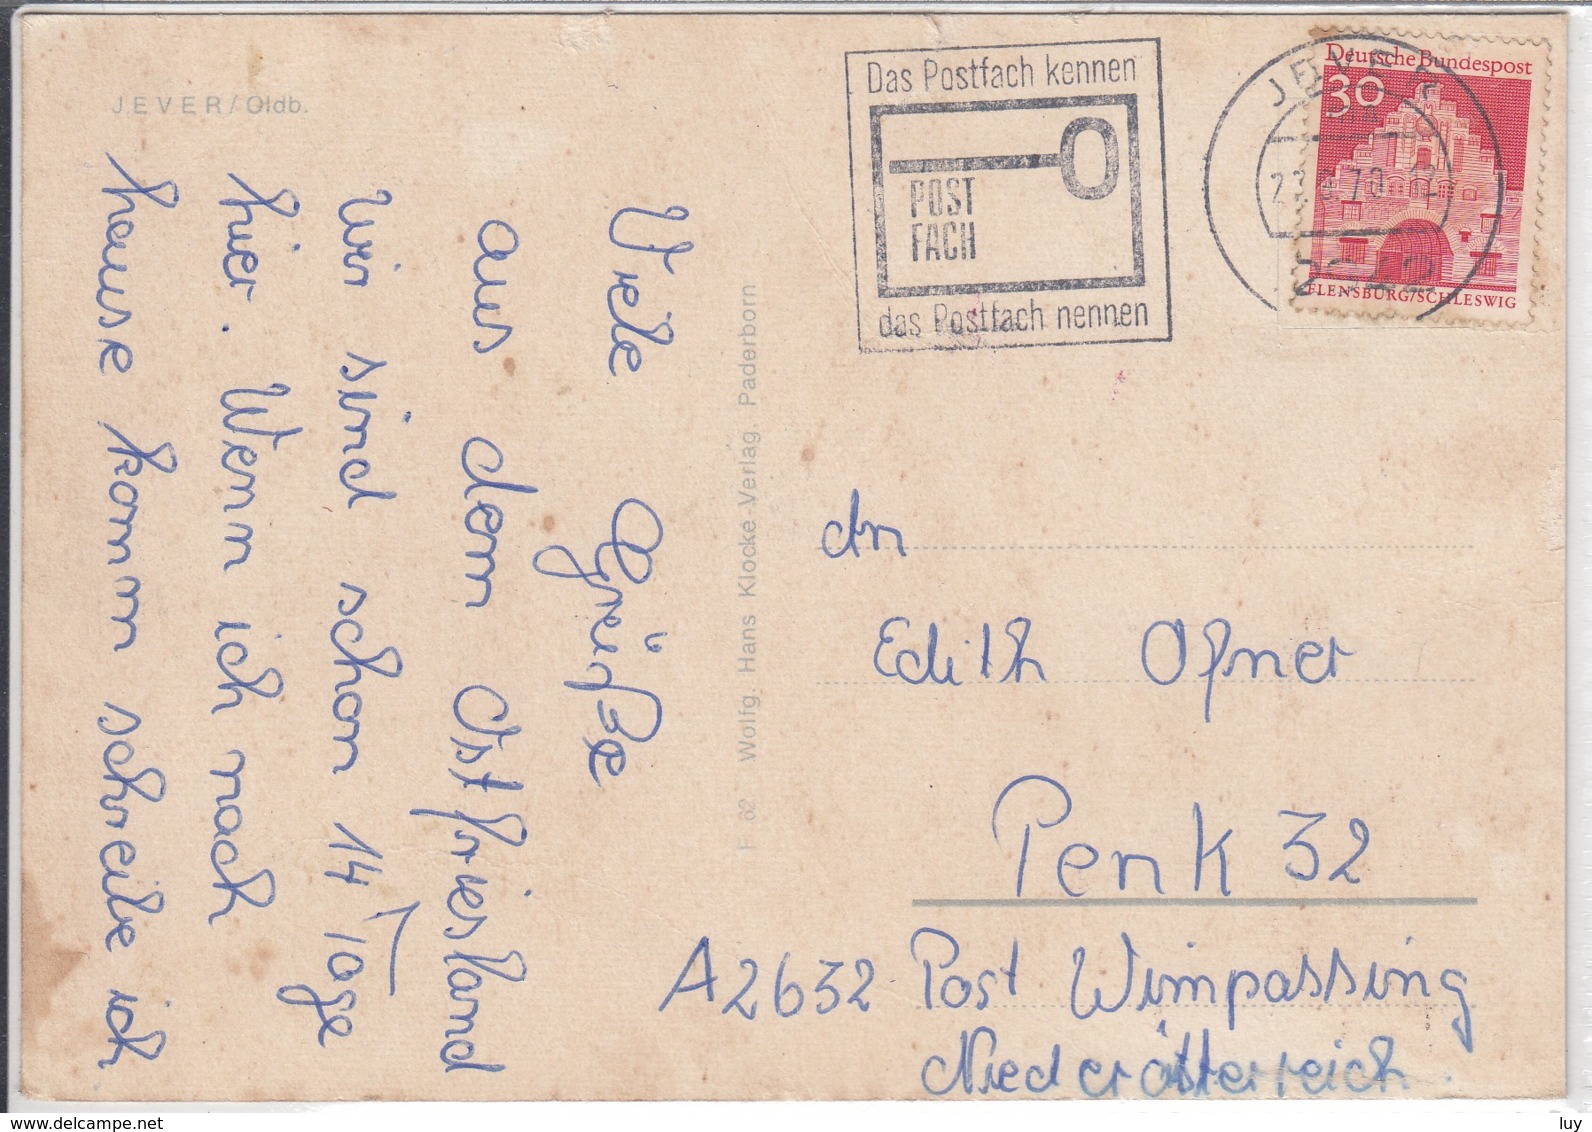 JEVER/Oldb.
Viele Grüße
aus dem Ostfriesland
wir sind schon 14 Tage
hier. Wenn ich nach
hause komm schreibe ich
F 62 Wolfg. Hans Klocke-Verlag, Paderborn
Das Postfach kennen
POST
FACH
das Postfach nennen
JEVER
70-12
Deutsche Bundespost
30
FLENSBURG/SCHLESWIG
An
Edith Ofner
Penk 32
A2632 Post Wimpassing
Niederösterreich.
www.delcampe.net
luy